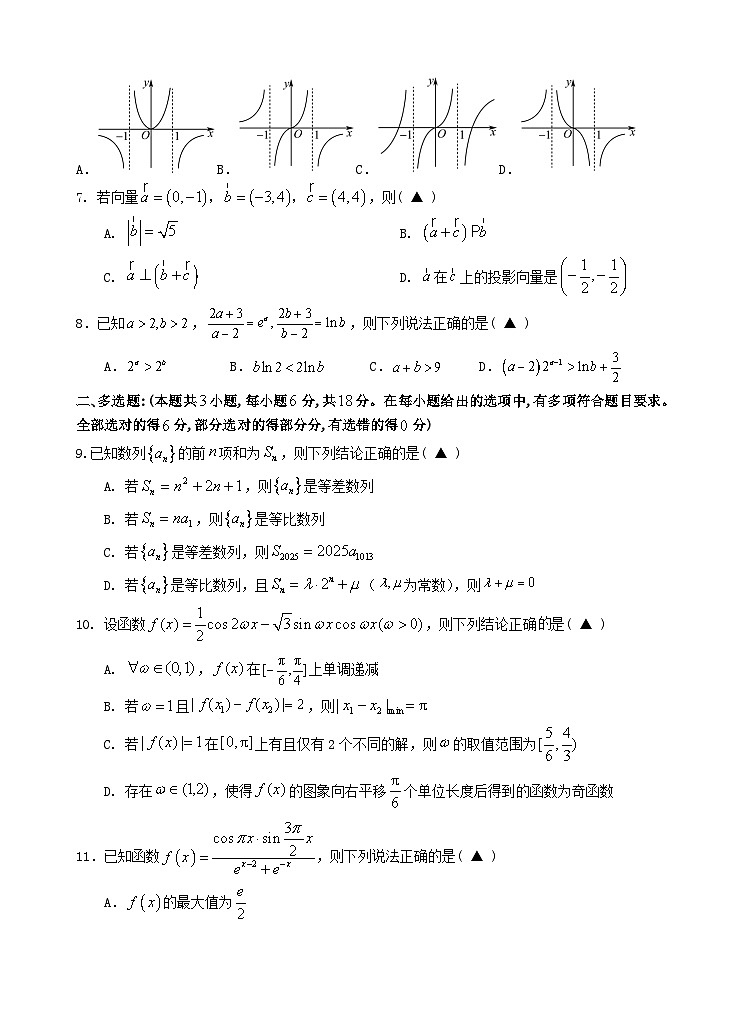 y y y y
-1 O 1 x -1 O 1 x -1 O 1 x -1 O 1 x
A. B. C. D.
7. 若向量 a = (0,-1), b = (-3,4), c = (4,4),则( ▲ )
A. |b| = √5 B. (a + c) P b
C. a ⊥ (b + c) D. a 在 c 上的投影向量是 (-1/2, -1/2)
8.已知 a > 2, b > 2, (2a+3)/(a-2) = e^a, (2b+3)/(b-2) = ln b,则下列说法正确的是( ▲ )
A. 2^a > 2^b B. b ln 2 < 2 ln b C. a + b > 9 D. (a-2)2^(a-1) > ln b + 3/2
二、多选题:(本题共 3 小题,每小题 6 分,共 18 分。在每小题给出的选项中,有多项符合题目要求。
全部选对的得 6 分,部分选对的得部分分,有选错的得 0 分)
9.已知数列{a_n}的前 n 项和为 S_n,则下列结论正确的是( ▲ )
A. 若 S_n = n² + 2n + 1,则{a_n}是等差数列
B. 若 S_n = na_1,则{a_n}是等比数列
C. 若{a_n}是等差数列,则 S_2025 = 2025a_1013
D. 若{a_n}是等比数列,且 S_n = λ·2^n + μ(λ,μ为常数),则 λ + μ = 0
10. 设函数 f(x) = 1/2 cos 2ωx - √3 sin ωx cos ωx(ω > 0),则下列结论正确的是( ▲ )
A. ∀ω∈(0,1),f(x)在[-π/6, π/4]上单调递减
B. 若 ω = 1 且 | f(x_1) - f(x_2) |= 2,则| x_1 - x_2 |_min = π
C. 若| f(x) |= 1 在[0,π]上有且仅有 2 个不同的解,则 ω 的取值范围为[5/6, 4/3)
D. 存在 ω∈(1,2),使得 f(x) 的图象向右平移 π/6 个单位长度后得到的函数为奇函数
11.已知函数 f(x) = (cos πx · sin (3π/2)x)/(e^(x-2) + e^(-x)),则下列说法正确的是( ▲ )
A. f(x) 的最大值为 e/2